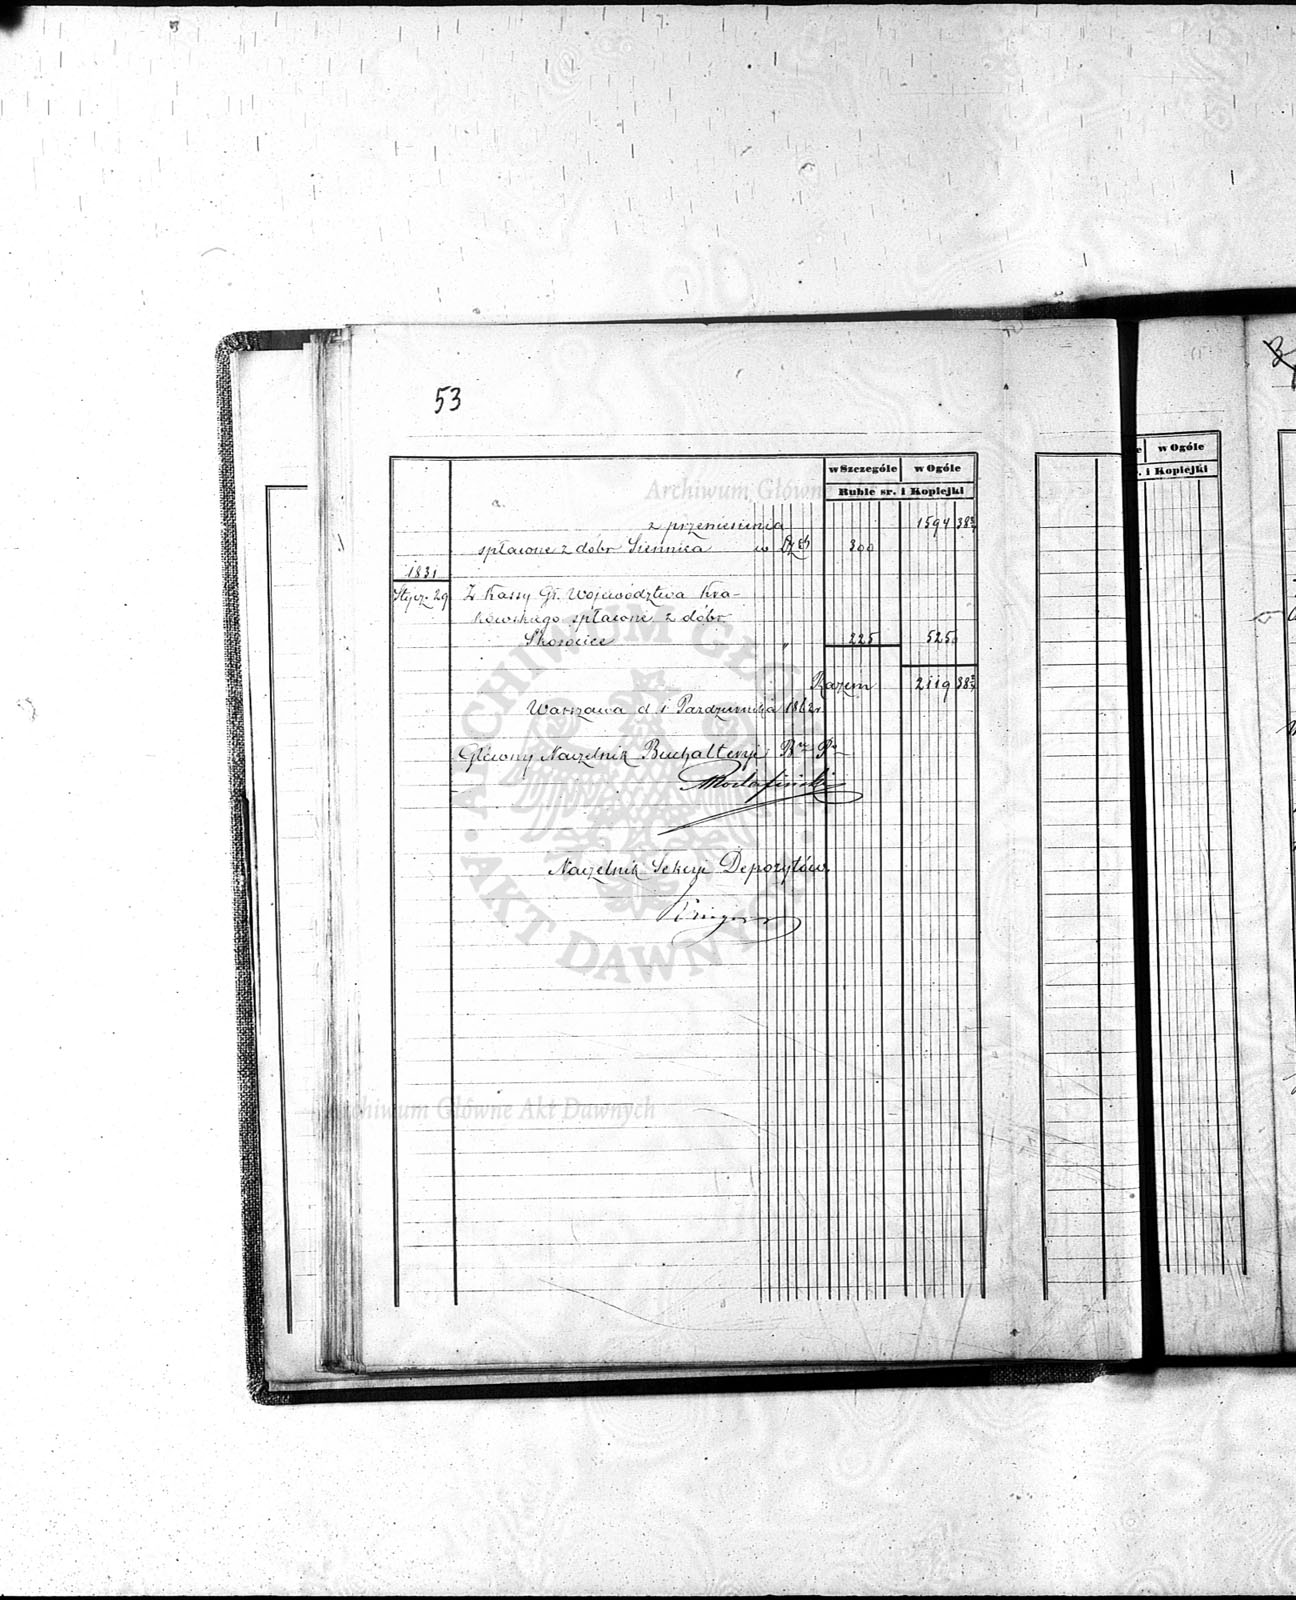 53
w Szczególe w Ogóle
Ruble sr. i Kopiejki
z przeniesienia 1594 38
spłacone z dóbr Siennica w 300
1831
Stycz. 29 Z Kassy Gł. Województwa Kra-
kowskiego spłacone z dóbr
Skorocice " 225 525
Razem 2119 38
Warszawa d. 1 Października 1862 r.
Główny Naczelnik Buchalteryi
Naczelnik Sekcyi Depozytów
w Ogóle
i Kopiejki
Archiwum Główne Akt Dawnych
ARCHIWUM GŁÓWNE AKT DAWNYCH
Archiwum Główne